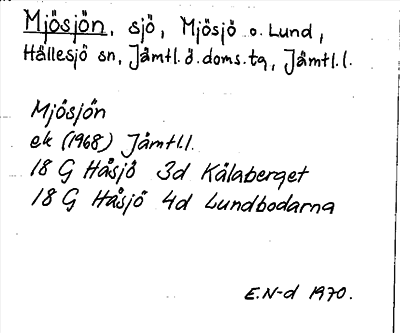 Mjösjön, sjö, Mjösjö o. Lund,
Hällesjö sn, Jämtl. ö. doms. tg, Jämtl. l.
Mjösjön
ek (1968) Jämtl.l.
18 G Håsjö 3d Kälaberget
18 G Håsjö 4d Lundbodarna
E.N-d 1970.